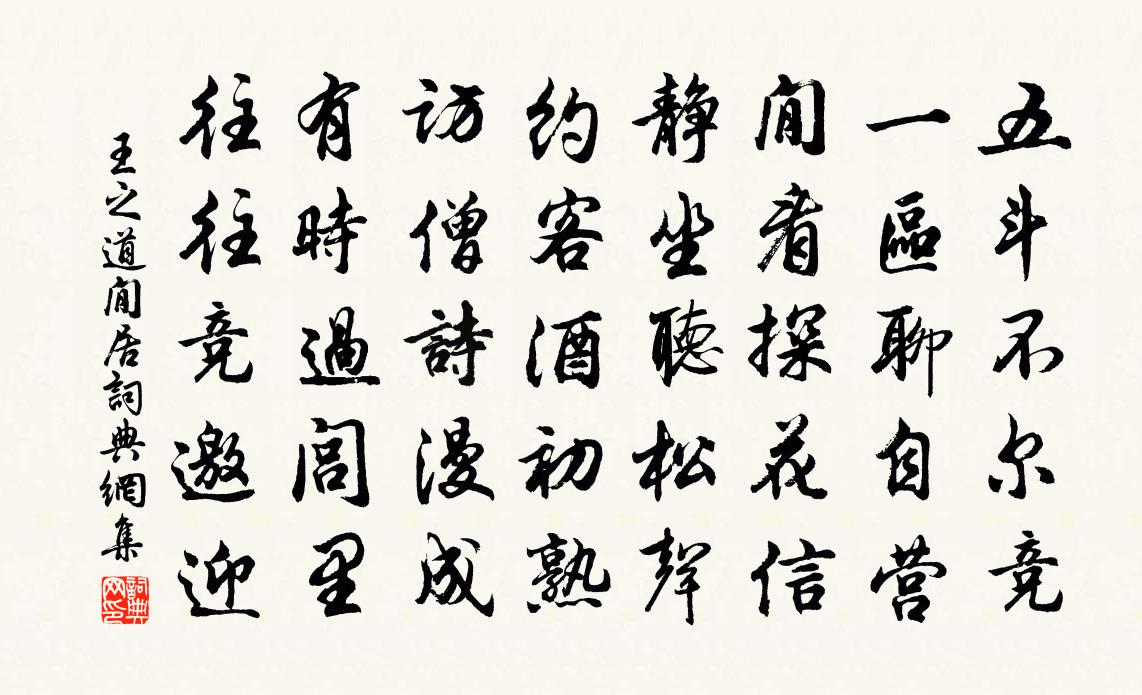 五斗不尔竞
一區聊自营
閒看探花信
静坐聽松聲
約客酒初熟
访僧詩漫成
有時過閭里
往往竞邀迎
王之道閒居詞典網集
詞典網印